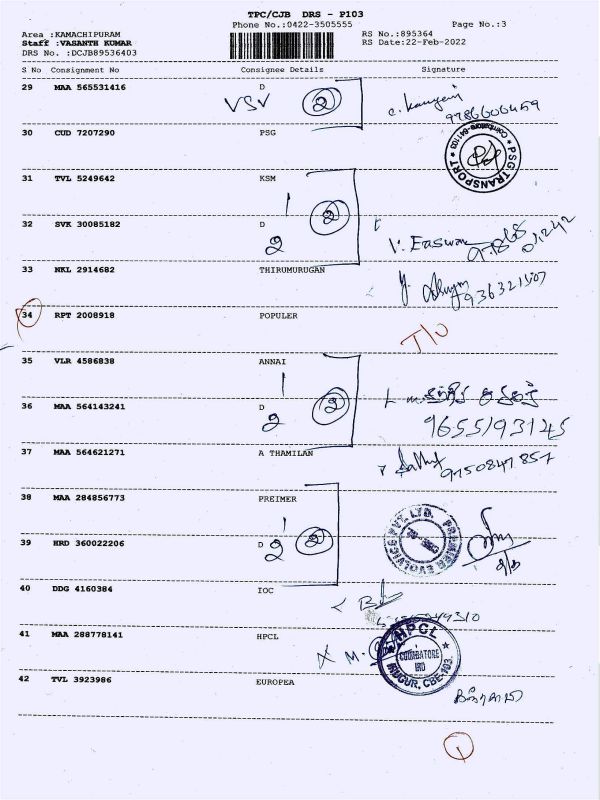 TPC/CJB DRS - P103
Phone No.:0422-3505555
Page No.:3
Area :KAMACHIPURAM
Staff :VASANTH KUMAR
DRS No. :DCJB89536403
RS No.:895364
RS Date:22-Feb-2022
S No Consignment No Consignee Details Signature
29 MAA 565531416 D
VSV 2
9786600459
30 CUD 7207290 PSG
PSG TRANSPORT
Coimbatore-641103
31 TVL 5249642 KSM
1 2
32 SVK 30085182 D
2
V. Easwar
33 NKL 2914682 THIRUMURUGAN
34 RPT 2008918 POPULER
T/O
35 VLR 4586838 ANNAI
1
36 MAA 564143241 D
2 2
9655193145
37 MAA 564621271 A THAMILAN
9750847857
38 MAA 284856773 PREIMER
1
39 HRD 360022206 D
2 2
40 DDG 4160384 IOC
41 MAA 288778141 HPCL
M.
HPCL
COIMBATORE
IRD
IRUGUR, CBE-103.
42 TVL 3923986 EUROPEA
1